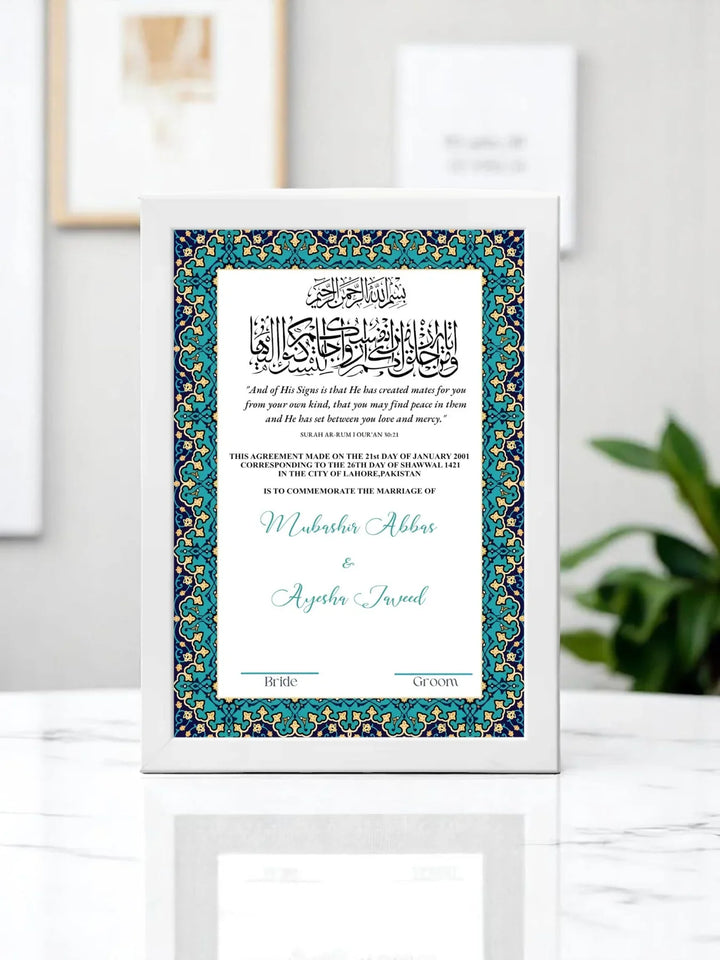 بسم الله الرحمن الرحيم
ومن آياته أن خلق لكم من أنفسكم أزواجا لتسكنوا إليها
"And of His Signs is that He has created mates for you
from your own kind, that you may find peace in them
and He has set between you love and mercy."
SURAH AR-RUM I QUR'AN 30:21
THIS AGREEMENT MADE ON THE 21st DAY OF JANUARY 2001
CORRESPONDING TO THE 26TH DAY OF SHAWWAL 1421
IN THE CITY OF LAHORE,PAKISTAN
IS TO COMMEMORATE THE MARRIAGE OF
Mubashir Abbas
&
Ayesha Javeed
Bride Groom